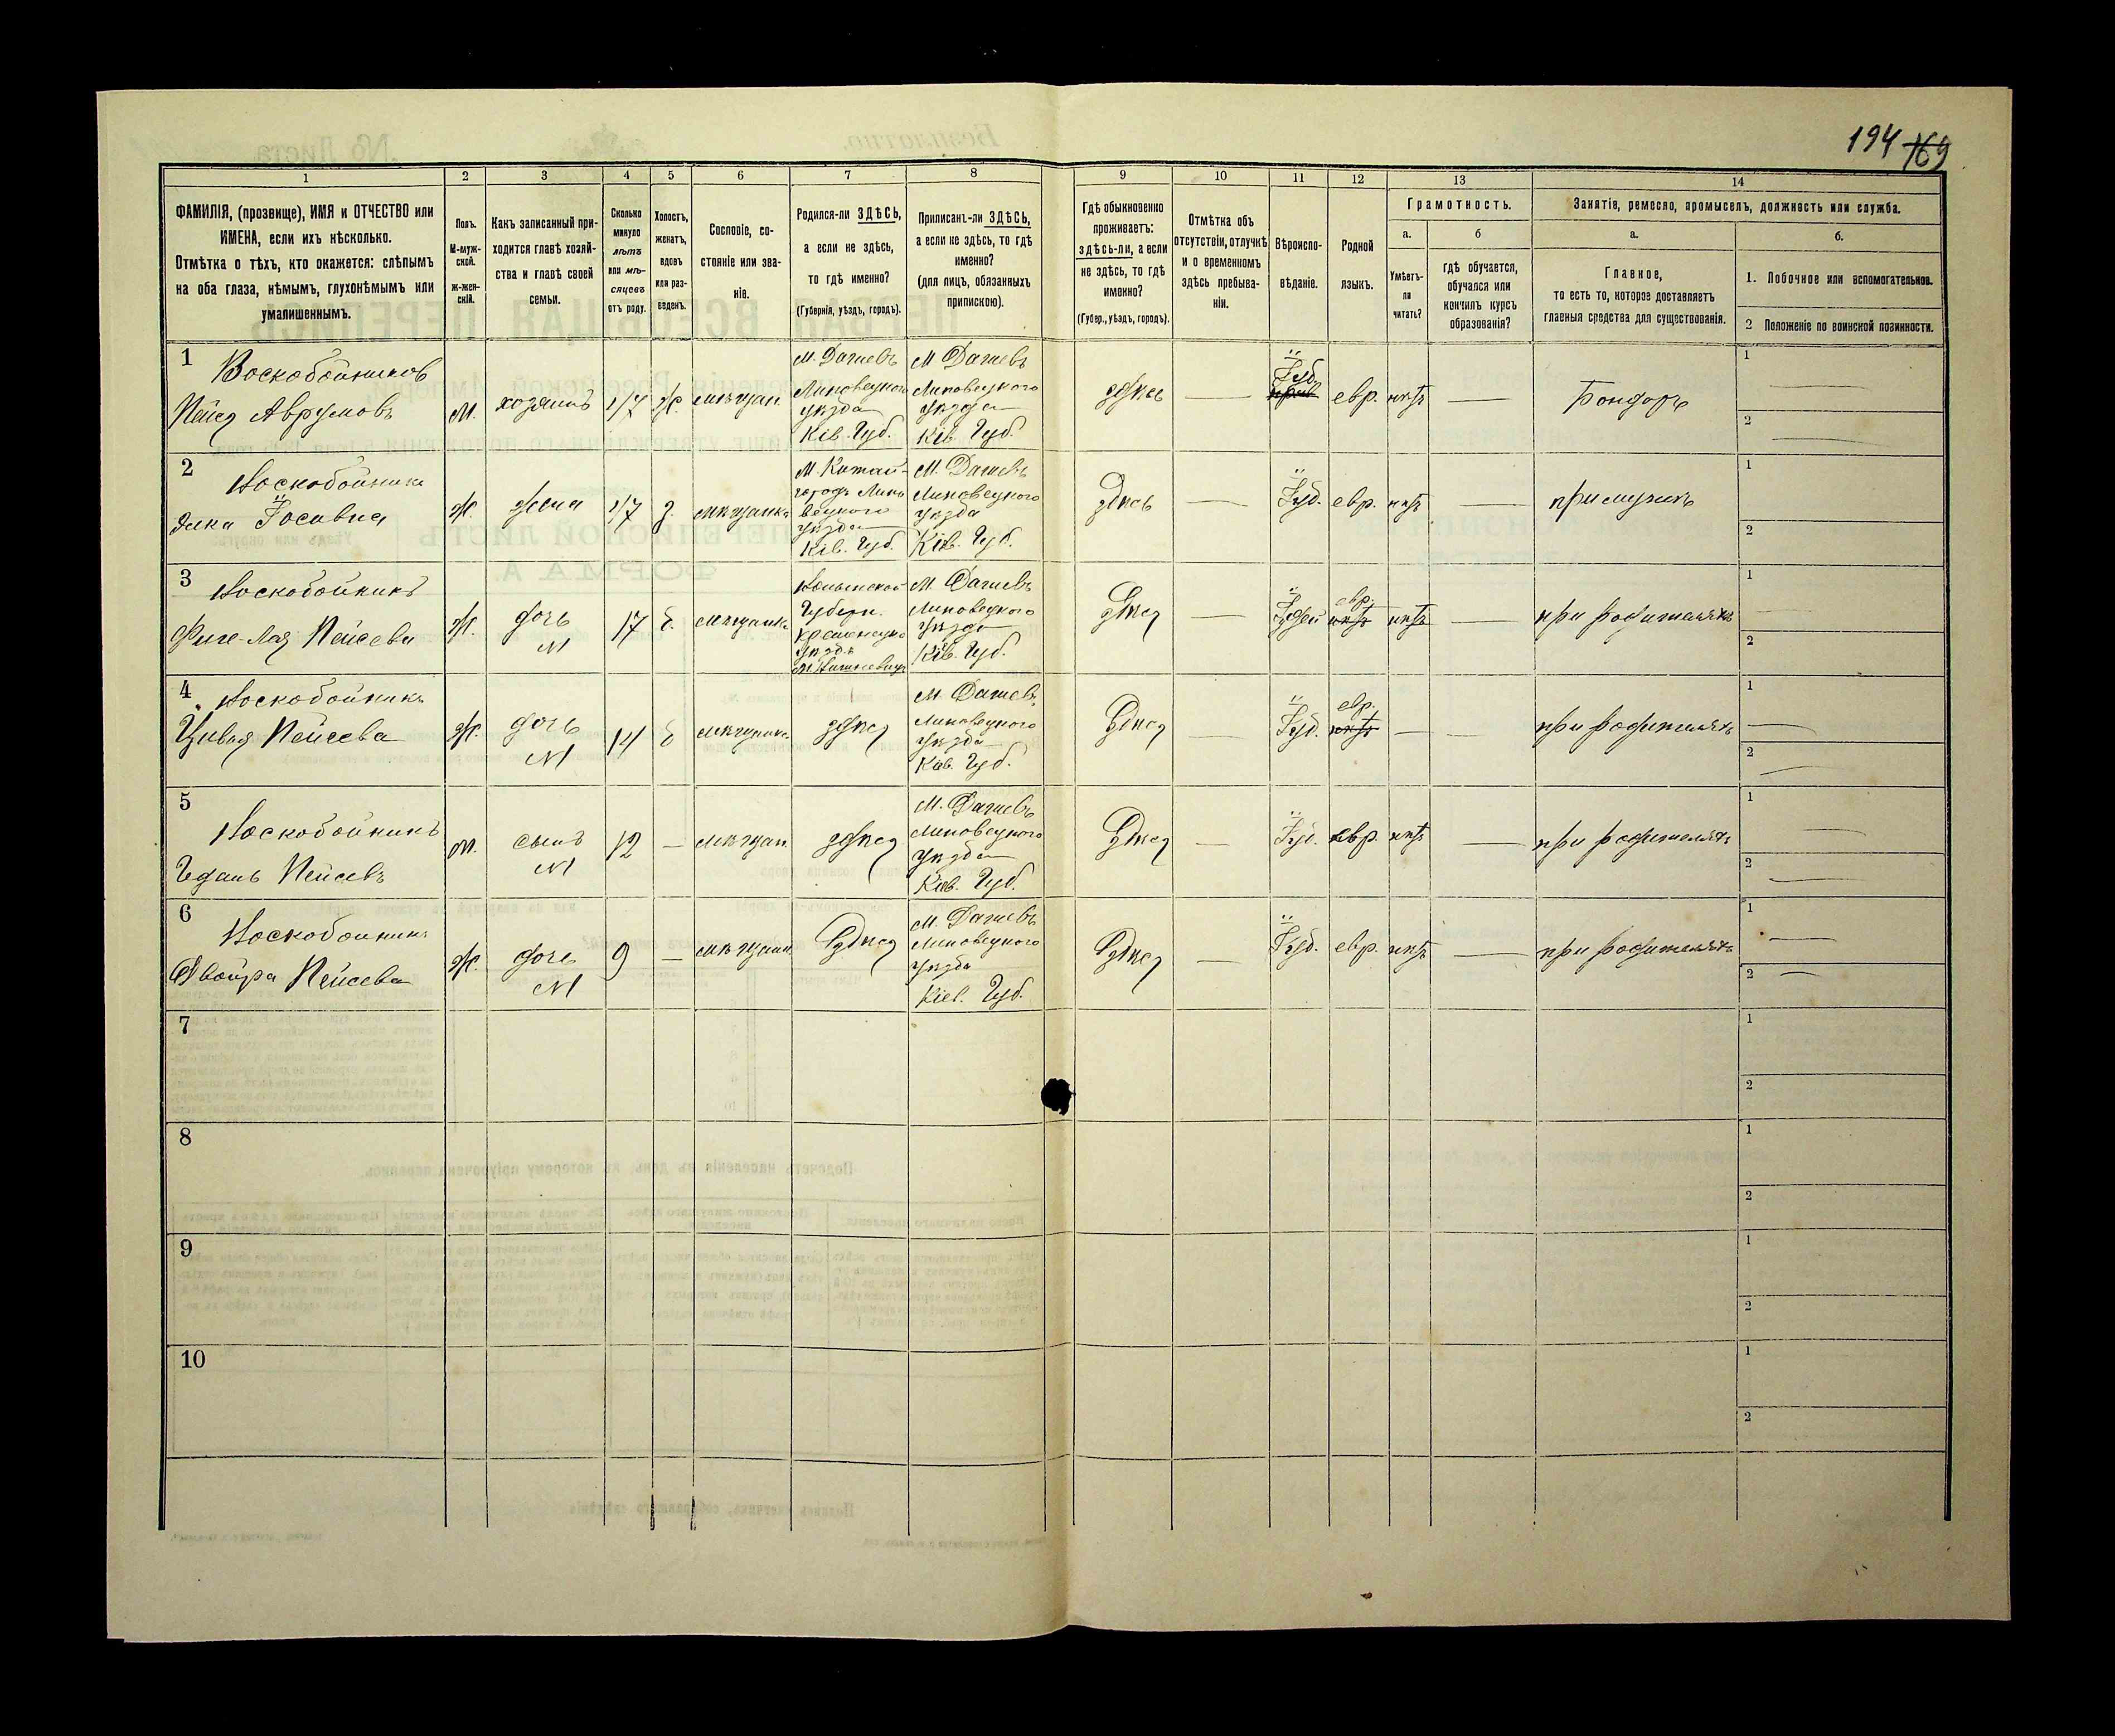 194 169
1 2 3 4 5 6 7 8 9 10 11 12 13 14
ФАМИЛІЯ, (прозвище), ИМЯ и ОТЧЕСТВО или
ИМЕНА, если ихъ нѣсколько.
Отмѣтка о тѣхъ, кто окажется: слѣпымъ
на оба глаза, нѣмымъ, глухонѣмымъ или
умалишеннымъ.
Полъ.
М-муж-
ской.
ж-жен-
скій.
Какъ записанный при-
ходится главѣ хозяй-
ства и главѣ своей
семьи.
Сколько
минуло
лѣтъ
или мѣ-
сяцевъ
отъ роду.
Холостъ,
женатъ,
вдовъ
или раз-
веденъ.
Сословіе, со-
стояніе или зва-
ніе.
Родился-ли ЗДѢСЬ,
а если не здѣсь,
то гдѣ именно?
(Губернія, уѣздъ, городъ).
Приписанъ-ли ЗДѢСЬ,
а если не здѣсь, то гдѣ
именно?
(для лицъ, обязанныхъ
припискою).
Гдѣ обыкновенно
проживаетъ:
здѣсь-ли, а если
не здѣсь, то гдѣ
именно?
(Губер., уѣздъ, городъ).
Отмѣтка объ
отсутствіи, отлучкѣ
и о временномъ
здѣсь пребыва-
ніи.
Вѣроиспо-
вѣданіе.
Родной
языкъ.
Грамотность.
а.
Умѣетъ-
ли
читать?
б
гдѣ обучается,
обучался или
кончилъ курсъ
образованія?
Занятіе, ремесло, промыселъ, должность или служба.
а.
Главное,
то есть то, которое доставляетъ
главныя средства для существованія.
б.
1. Побочное или вспомогательное.
2 Положеніе по воинской повинности.
1
Воскобойников
Пейся Аврумовъ
М.
хозяинъ
47
ж.
мѣщан.
М. Дашевъ
Липовецкого
уѣзда
Ків. Губ.
М Дашевъ
Липовецкого
уѣзда
Кіев. Губ.
здѣсь
Іуд.
евр.
нѣтъ
Бондарь
1
2
2
Воскобойник
Іосивна
Ж.
жена
47
з.
мѣщанка
М. Китай-
городъ Липо
вецкого
уѣзда
Кіев. Губ.
М. Дашевъ
Липовецкого
уѣзда
Кіев. Губ.
здѣсь
Іуд.
евр.
нѣтъ
при мужѣ
1
2
3
Воскобойникъ
Фиге-Лая Пейсева
Ж.
дочь
№1
17
д.
мѣщанка
Волынской
Губерн.
Кременецк.
уѣзда
М Вишневецъ
М. Дашевъ
Липовецкого
уѣзда
Кіев. Губ.
здѣся
Іудей
евр.
нѣтъ
нѣтъ
при родителяхъ
1
2
4
Воскобойникъ
Цивья Пейсева
Ж.
дочь
№1
14
д
мѣщанка
здѣся
М. Дашевъ
Липовецкого
уѣзда
Кіев. Губ.
здѣся
Іуд.
евр.
нѣтъ
при родителяхъ
1
2
5
Воскобойникъ
Пейсевъ
М.
сынъ
№1
12
мѣщан
здѣся
М. Дашевъ
Липовецкого
уѣзда
Кіев. Губ.
здѣся
Іуд.
евр.
нѣтъ
при родителяхъ
1
2
6
Воскобойникъ
Двойра Пейсева
Ж.
дочь
№1
9
мѣщанк.
здѣся
М. Дашевъ
Липовецкого
уѣзда
Кіев. Губ.
здѣся
Іуд.
евр.
нѣтъ
при родителяхъ
1
2
7
1
2
8
1
2
9
1
2
10
1
2